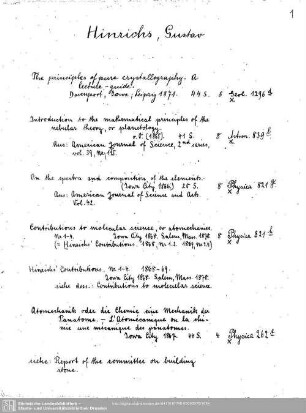 1
Hinrichs, Gustav
The principles of pure crystallography. A
lecture-guide.
Davenport, Iowa; Leipzig 1871. 44 S. 8 Geol. 1296
x
Introduction to the mathematical principles of the
nebular theory, or planetology.
o.O. (1865). 41 S. 8 Astron. 839
Aus: American Journal of Science, 2nd series,
vol. 39, No 115.
On the spectra and composition of the elements.
(Iowa City 1866.) 25 S. 8 Physica 821
Aus: American Journal of Science and Arts.
Vol. 42.
Contributions to molecular science, or atomechanics.
Nr 1-4. Iowa City 1868. Salem, Mass. 1870. 8 Physica 821
(= Hinrichs' Contributions. 1868, Nr 1.2. 1869, Nr 3.4)
Hinrichs' Contributions. Nr 1-4. 1868-69.
Iowa City 1868. Salem, Mass. 1870.
siehe dess.: Contributions to molecular science
Atomechanik oder die Chemie eine Mechanik der
Panatome. - L'Atomécanique ou la chi-
mie une mécanique des panatomes.
Iowa City 1867. 44 S. 4 Physica 262
x
siehe: Report of the committee on building
stone.